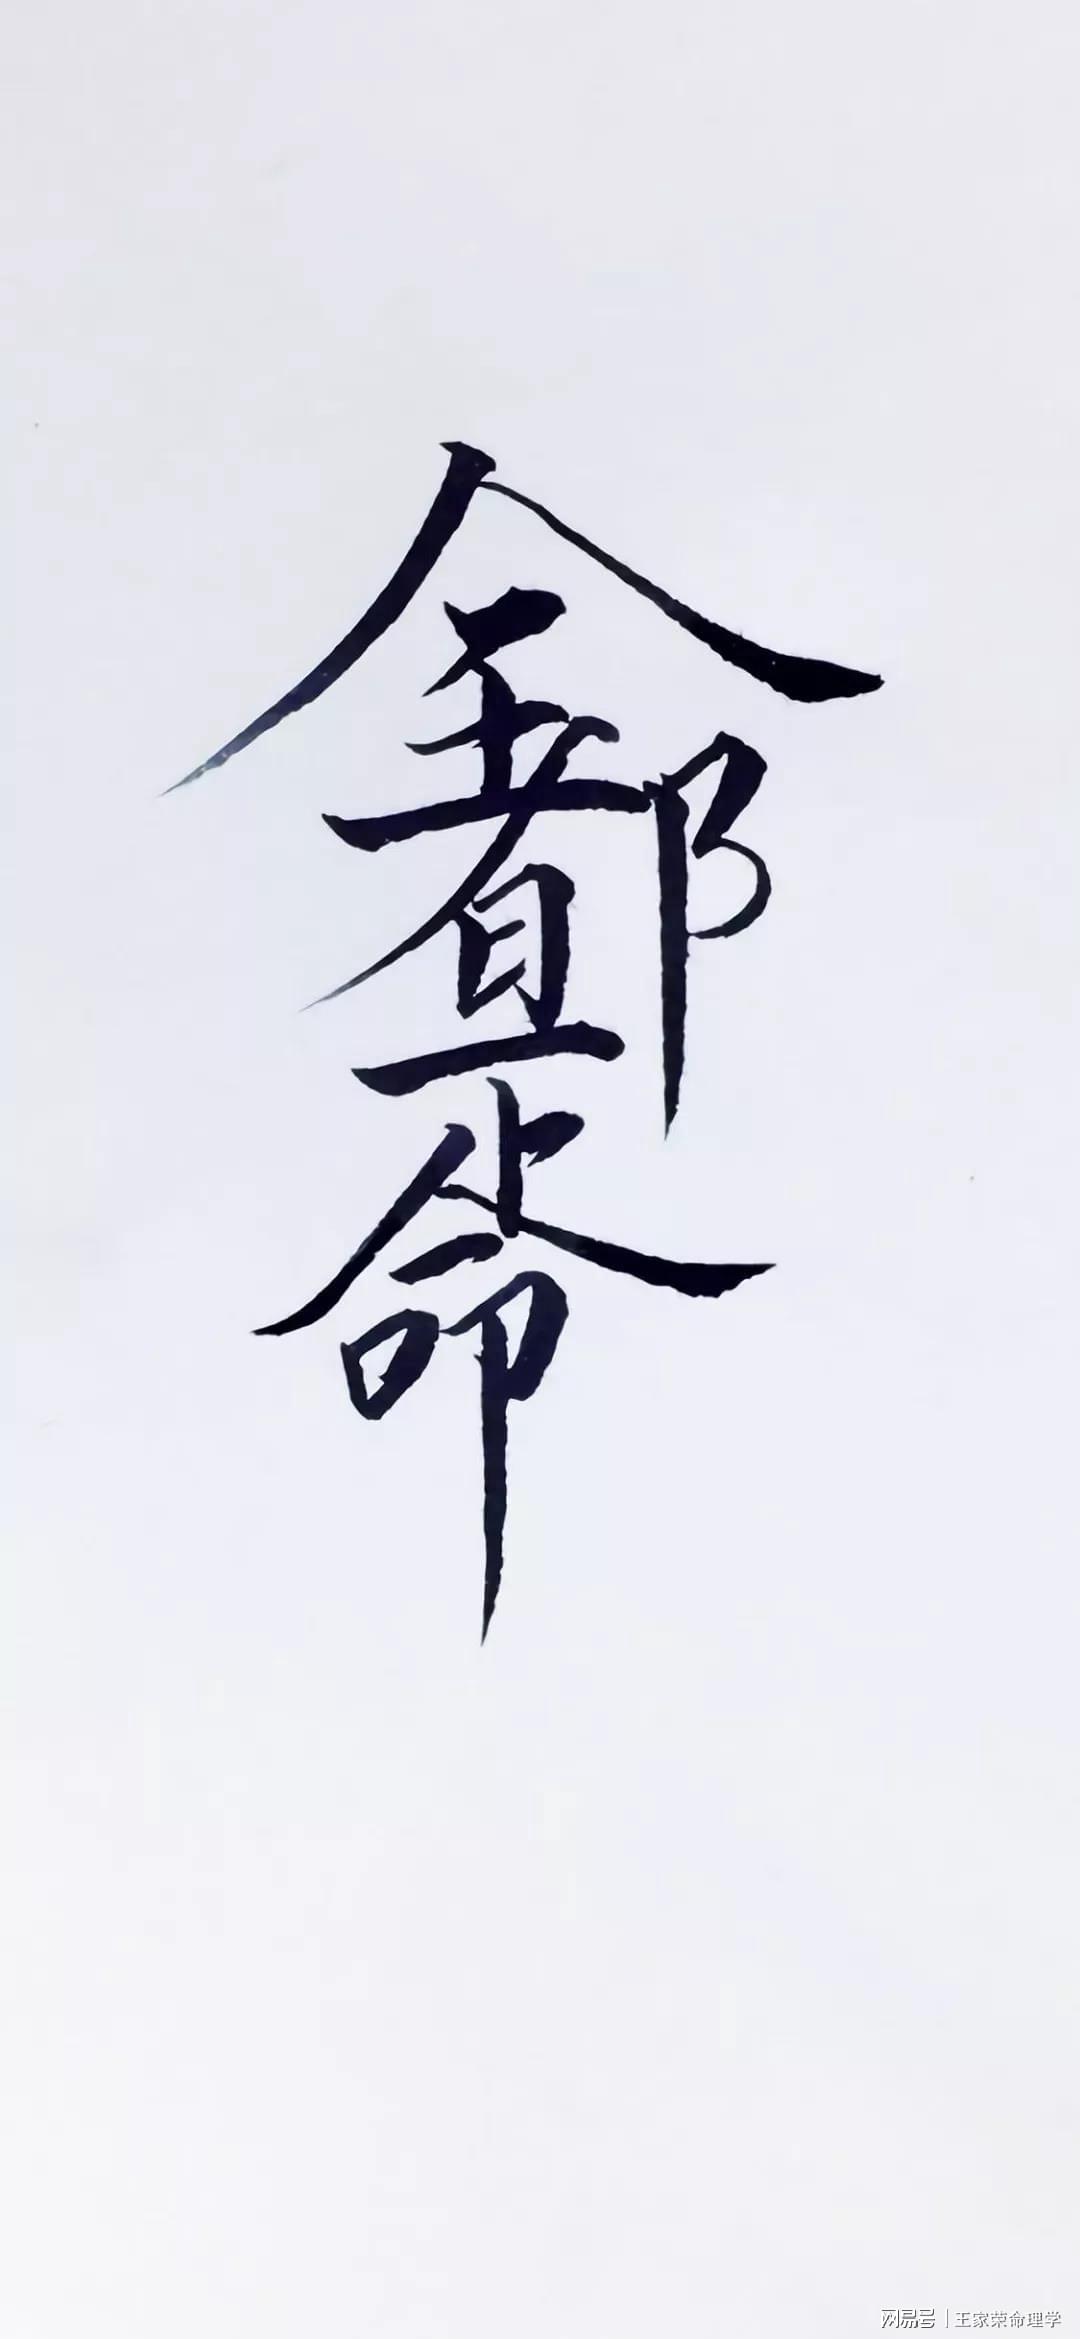 全都是命
网易号 | 王家荣命理学